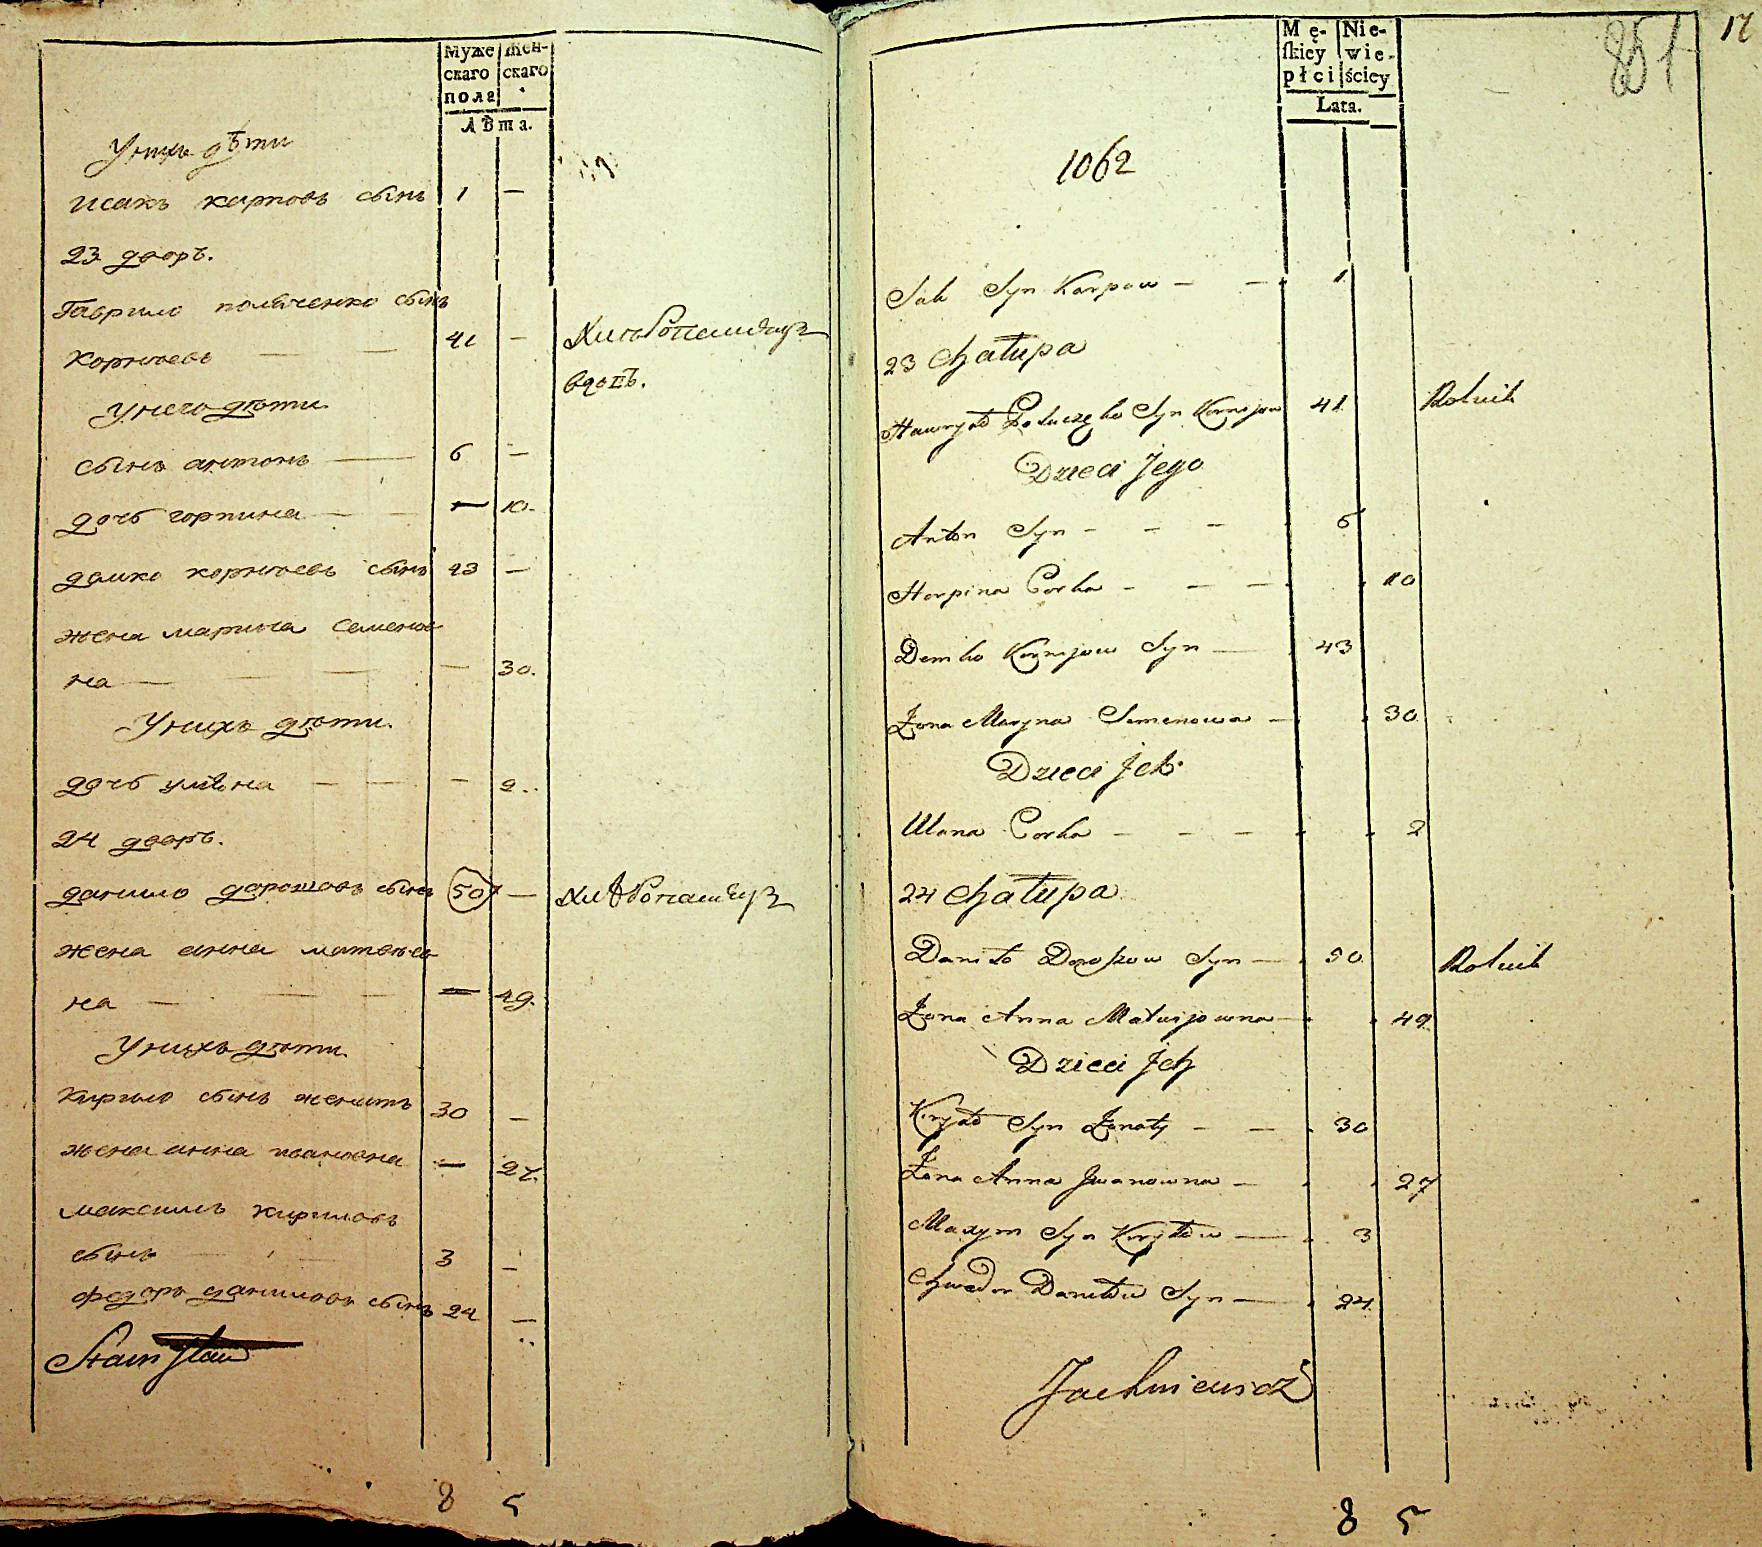 Муже Жен-
скаго скаго
пола
Лѣта.
У нихъ дѣти
исакъ карповъ сынъ 1 —
23 дворъ.
Гаврило полѣченко сынъ
Корнѣевъ — — 41 — Хлѣбопашецъ
вдовъ.
У него дѣти
сынъ антонъ — 6 —
дочь горпина — — — 10.
дѣмко корнѣевъ сынъ 43 —
жена марина семенов
на — — — — 30.
У нихъ дѣти.
дочь улѣяна — — — 2..
24 дворъ.
данило дорошовъ сынъ 50 — Хлѣбопашецъ
жена анна матвѣев
на — — — — 49.
У нихъ дѣти.
кирило сынъ женатъ 30 —
жена анна ивановна — 27.
максимъ кириловъ
сынъ — — 3 —
федоръ даниловъ сынъ 24 —
Stanisław
8 5
17
851
Mę- Nie-
ſkiey wie-
płci ściey
Lata.
1062
Sak Syn Karpow — — 1
23 Chałupa
Hawryło Poluczęko Syn Kornijow 41 Rolnik
Dzieci Jego
Anton Syn — — — 6
Horpina Corka — — — 10
Demko Kornijow Syn — 43
Żona Maryna Semenowa — 30
Dzieci Jch
Ulana Corka — — — 2
24 Chałupa
Daniło Doroszow Syn — 50 Rolnik
Żona Anna Matwijowna — 49
Dzieci Jch
Kiryło Syn Żonaty — — 30
Żona Anna Jwanowna — 27
Maxym Syn Kiryłow — 3
Chwedor Daniłow Syn — 24
Jachniewicz
8 5